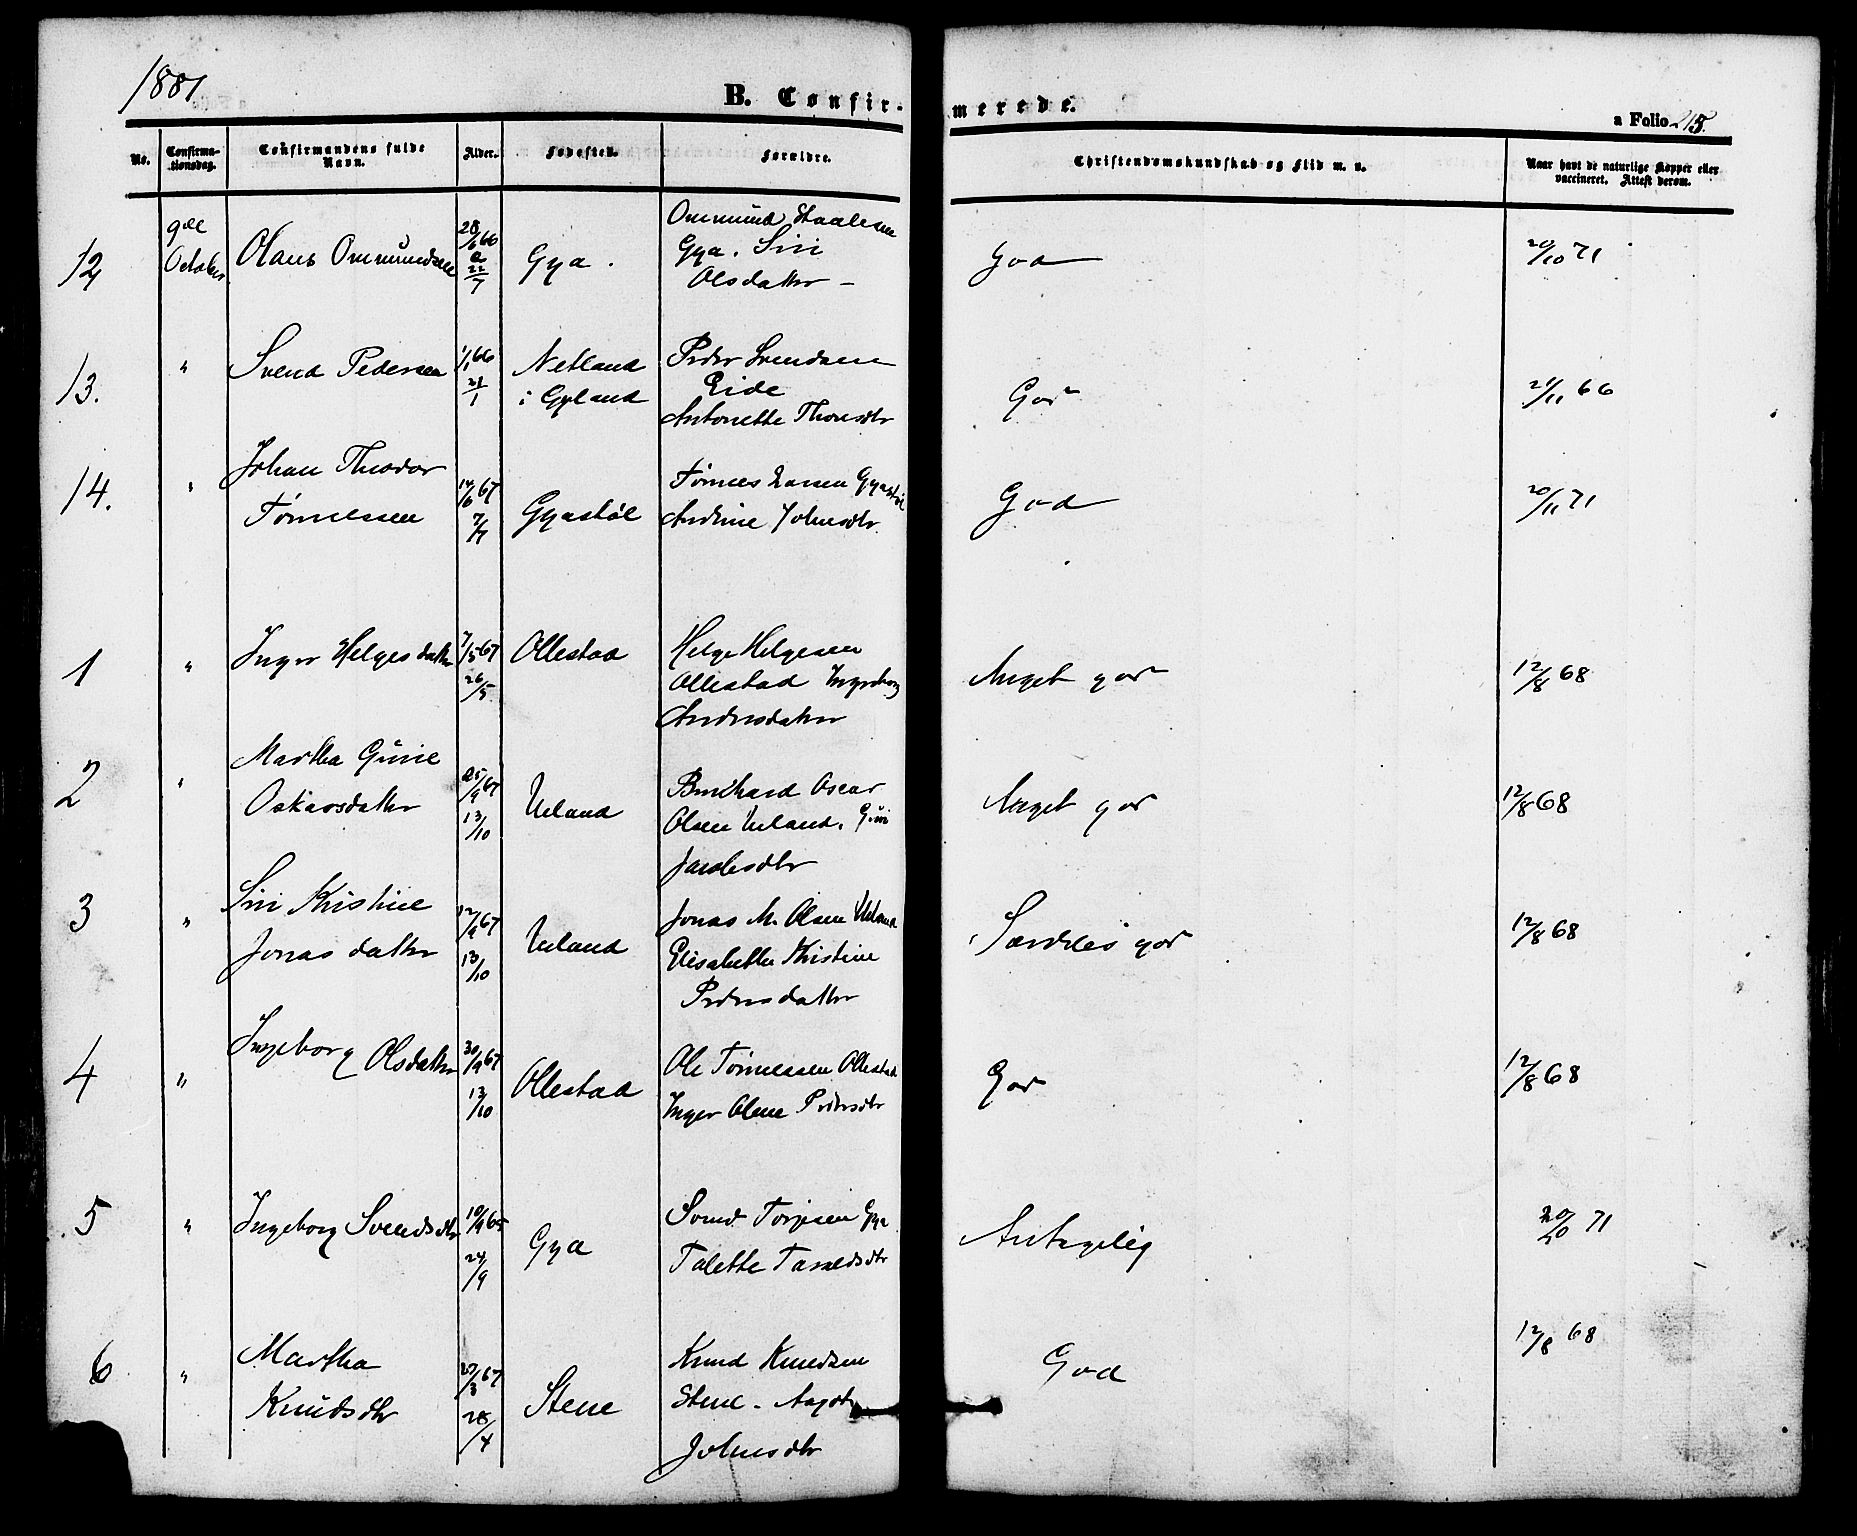 1881
B. Confirmerede.
a Folio 215.
No.
Confirma-
tionsdag.
Confirmandens fulde
Navn.
Alder.
Fødested.
Forældre.
Christendomskundskab og Flid m. v.
Naar havt de naturlige Kopper eller
vaccineret. Attest derom.
12 9de October Olaus Ommundsen 28/6 66 22/7 Gya. Ommund Staalesen
Gya. Siri
Olsdatter - God 20/10 71
13. " Svend Pedersen 1/1 66 21/1 Netland
i Gyland Peder Svendsen
Eide
Antonette Thorsdtr God 21/11 66
14. " Johan Theodor
Tønnessen 14/6 67 7/7 Gyastøl Tønnes Larsen Gyastøl
Andrine Johnsdtr. God 20/11 71
1 " Inger Helgesdatter 7/5 67 26/5 Ollestad Helge Helgesen
Ollestad Ingeborg
Andersdatter Meget god 12/8 68
2 " Martha Gurine
Oskarsdatter 25/9 67 13/10 Ueland Bernhard Oscar
Olsen Ueland. Guri
Jacobsdtr Meget god 12/8 68
3 " Siri Kristine
Jonasdatter 12/9 67 13/10 Ueland Jonas M. Olsen Ueland
Elisabeth Kristine
Pedersdatter Særdeles god 12/8 68
4 " Ingeborg Olsdatter 30/9 67 13/10 Ollestad Ole Tønnessen Ollestad
Inger Olene Pedersdtr God 12/8 68
5 " Ingeborg Svendsdtr 10/9 65 24/9 Gya Svend Torjesen Gya
Talette Tarieldsdtr Antagelig 20/10 71
6 " Martha
Knudsdtr 27/3 67 28/4 Stene Knud Knudsen
Stene - Aagot
Johnsdtr God 12/8 68